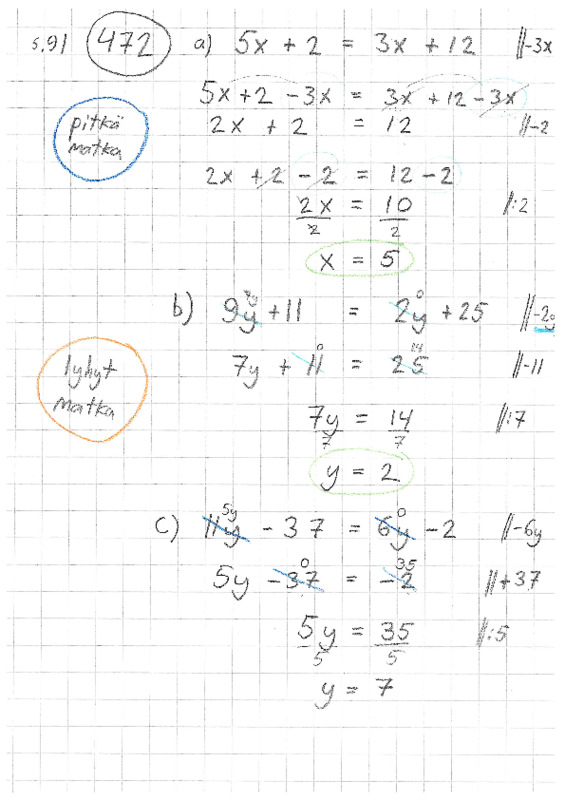 s.91 472 a) 5x + 2 = 3x + 12 ||-3x
5x + 2 - 3x = 3x + 12 - 3x
pitkä matka
2x + 2 = 12 ||-2
2x + 2 - 2 = 12 - 2
2x/2 = 10/2 ||:2
x = 5
7y 0
b) 9y + 11 = 2y + 25 ||-2y
lyhyt matka
0 14
7y + 11 = 25 ||-11
7y/7 = 14/7 ||:7
y = 2
5y 0
c) 11y - 37 = 6y - 2 ||-6y
0 35
5y - 37 = -2 ||+37
5y/5 = 35/5 ||:5
y = 7